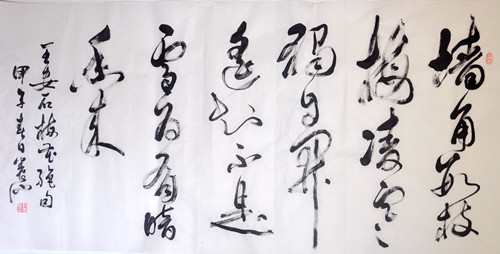 墙角数枝
梅凌寒
独自开
遥知不是
雪为有暗
香来
王安石梅花绝句
甲午春日